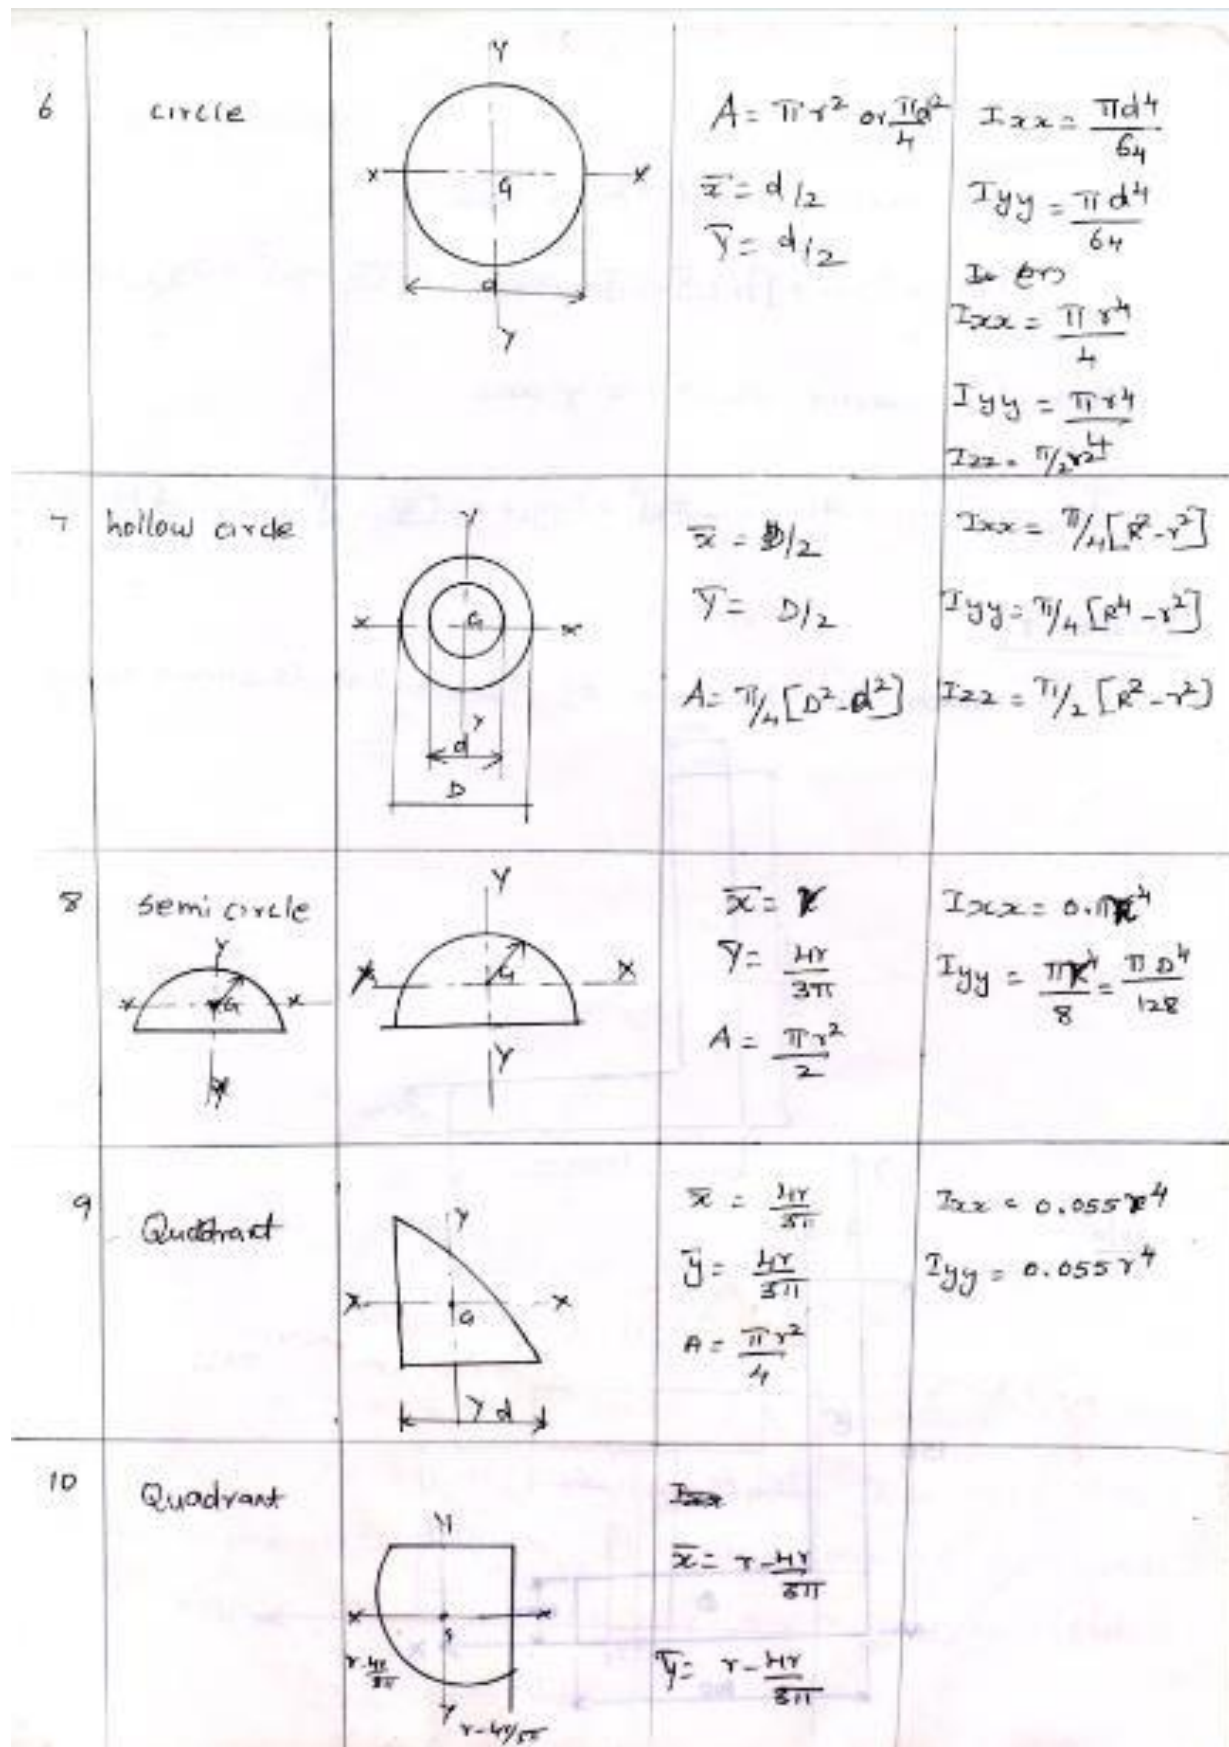 6 circle
Y
X G X
d
Y
A = πr² or πd²/4
x̄ = d/2
Y̅ = d/2
Ixx = πd⁴/64
Iyy = πd⁴/64
(or)
Ixx = πr⁴/4
Iyy = πr⁴/4
Izz = π/2 r⁴
7 hollow circle
Y
X G X
Y
d
D
x̄ = D/2
Y̅ = D/2
A = π/4 [D² - d²]
Ixx = π/4 [R² - r²]
Iyy = π/4 [R⁴ - r²]
Izz = π/2 [R² - r²]
8 Semi circle
Y
X G X
Y
Y
X G X
Y
x̄ = r
Y̅ = 4r/3π
A = πr²/2
Ixx = 0.11r⁴
Iyy = πr⁴/8 = πD⁴/128
9 Quadrant
Y
X G X
Y d
x̄ = 4r/3π
y̅ = 4r/3π
A = πr²/4
Ixx = 0.055r⁴
Iyy = 0.055r⁴
10 Quadrant
Y
X G X
r-4r/3π
Y r-4r/3π
Ixx
x̄ = r-4r/3π
y̅ = r-4r/3π